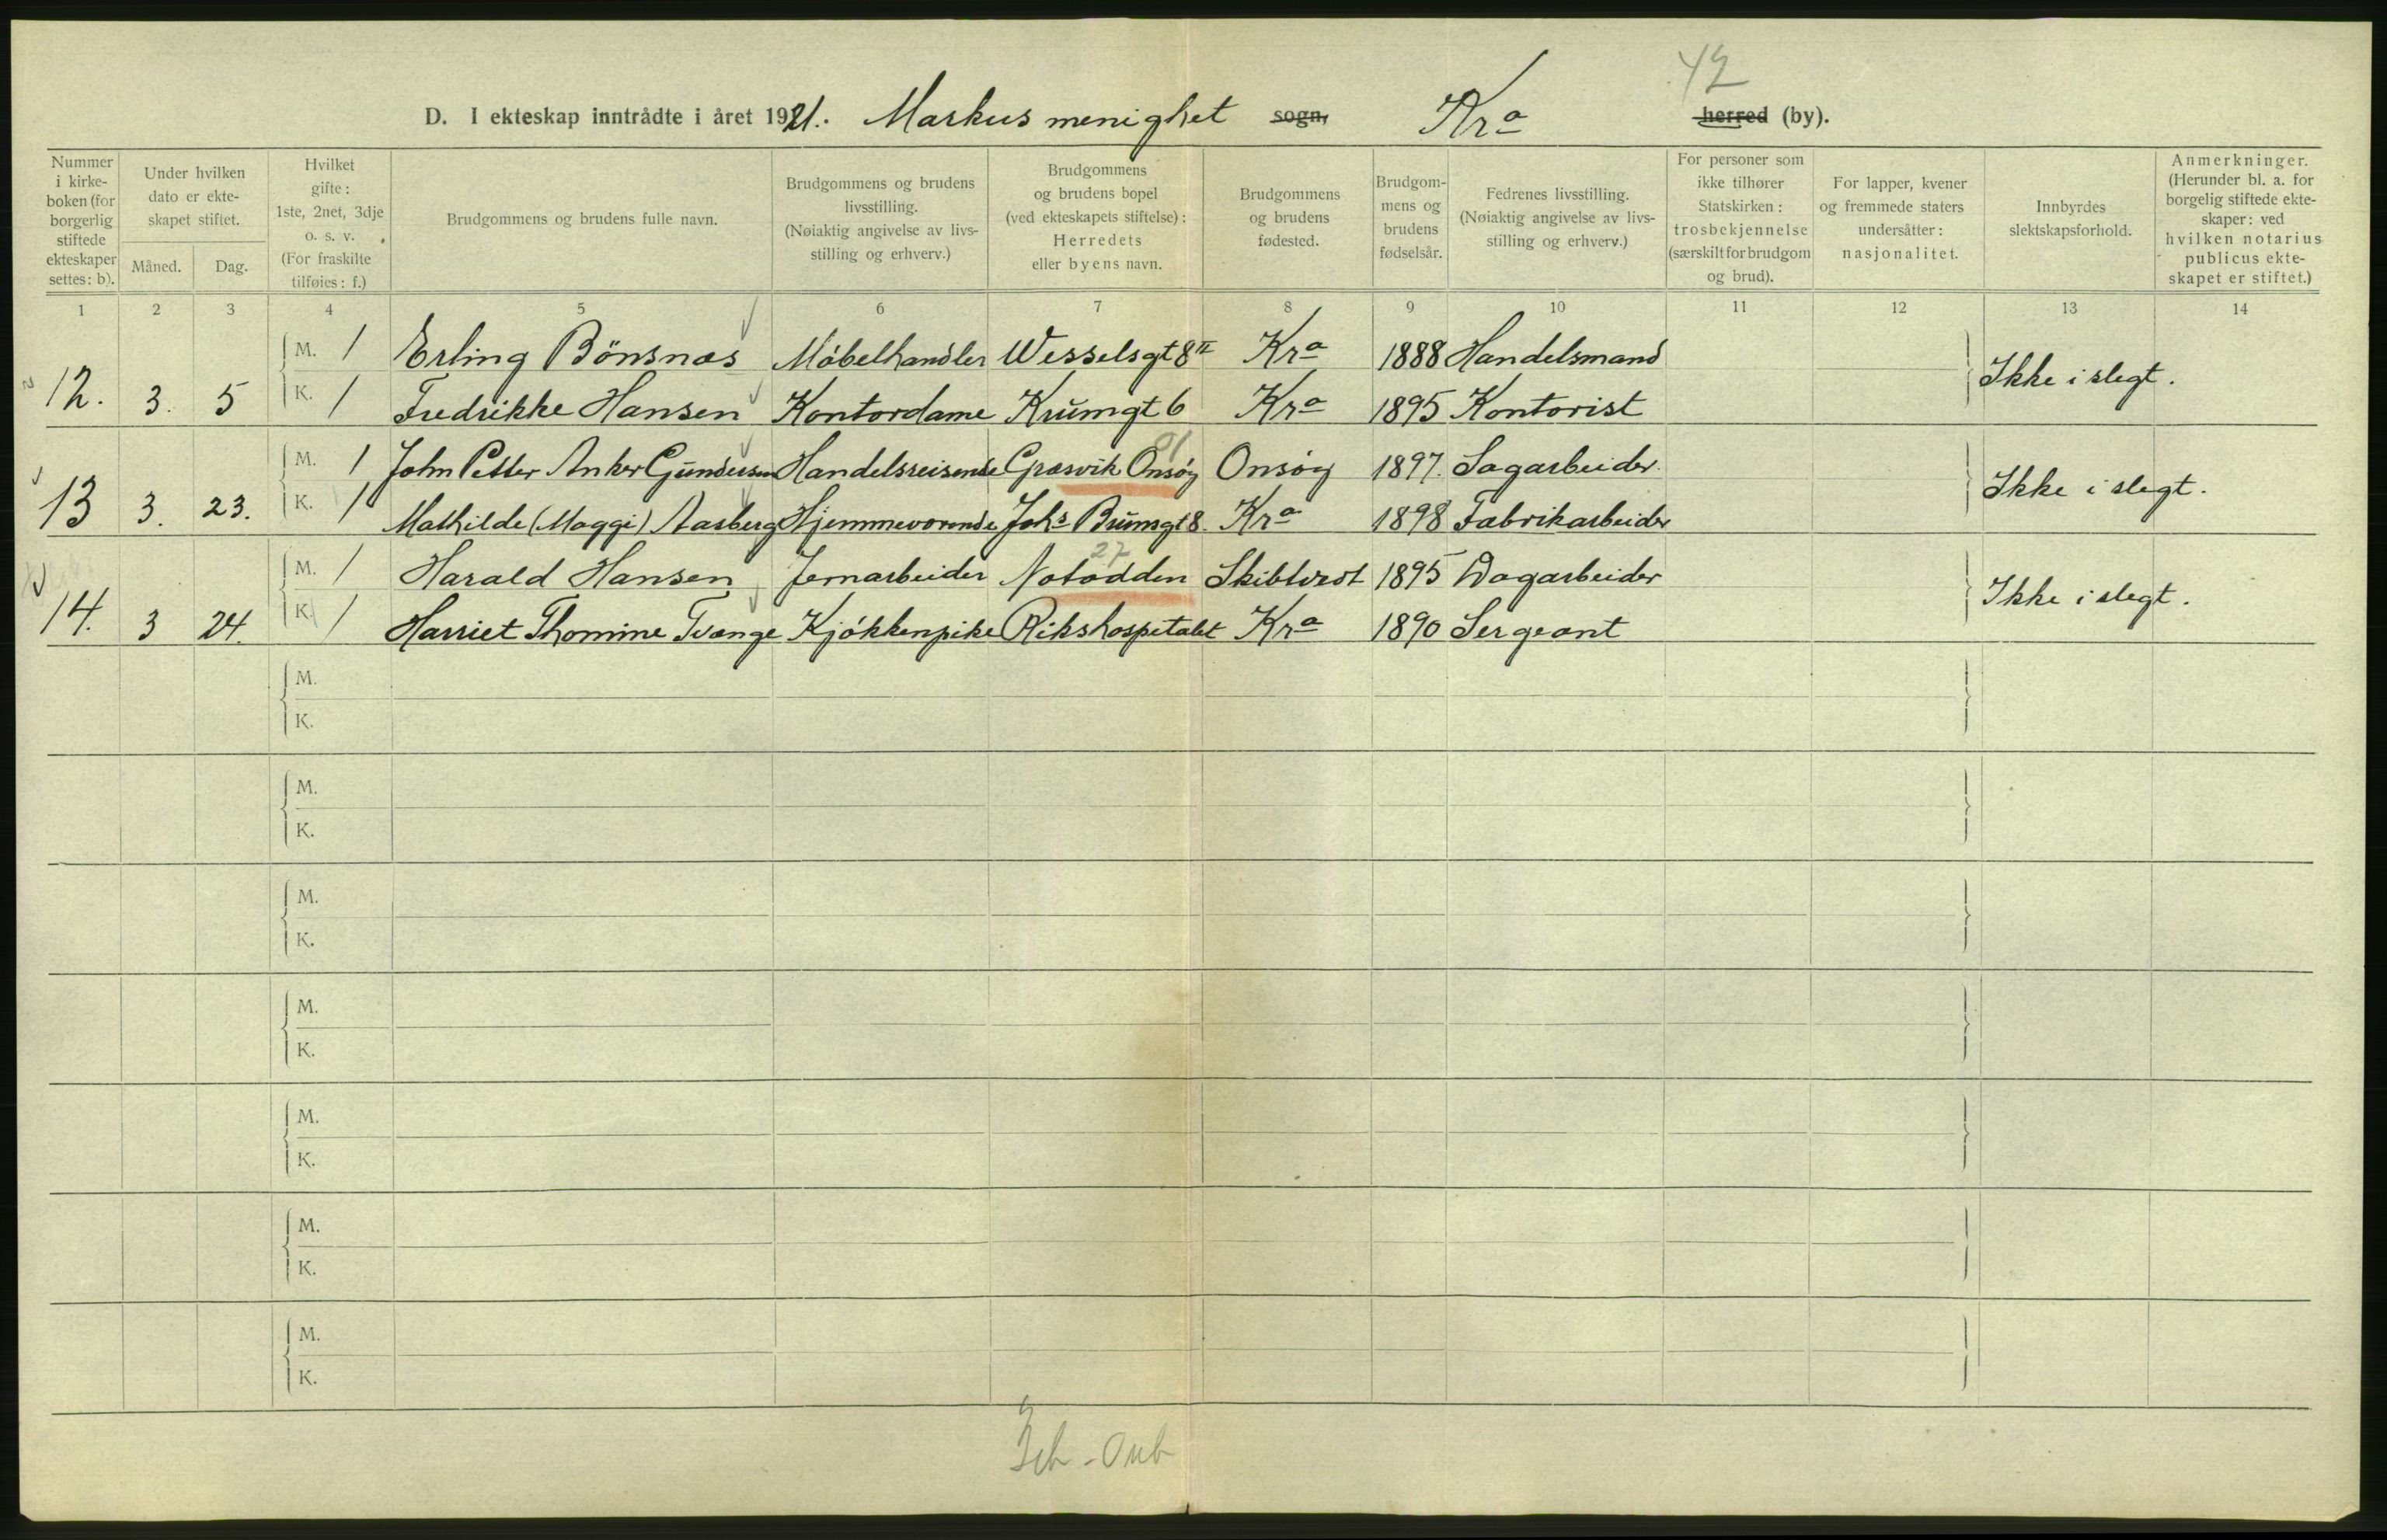 42
D. I ekteskap inntrådte i året 1921. Markus menighet sogn, Kra herred (by).
Nummer i kirkeboken (for borgerlig stiftede ekteskaper settes: b).
Under hvilken dato er ekteskapet stiftet.
Måned.
Dag.
Hvilket gifte: 1ste, 2net, 3dje o. s. v. (For fraskilte tilføies: f.)
Brudgommens og brudens fulle navn.
Brudgommens og brudens livsstilling. (Nøiaktig angivelse av livsstilling og erhverv.)
Brudgommens og brudens bopel (ved ekteskapets stiftelse): Herredets eller byens navn.
Brudgommens og brudens fødested.
Brudgommens og brudens fødselsår.
Fedrenes livsstilling. (Nøiaktig angivelse av livsstilling og erhverv.)
For personer som ikke tilhører Statskirken: trosbekjennelse (særskilt for brudgom og brud).
For lapper, kvener og fremmede staters undersåtter: nasjonalitet.
Innbyrdes slektskapsforhold.
Anmerkninger. (Herunder bl. a. for borgelig stiftede ekteskaper: ved hvilken notarius publicus ekteskapet er stiftet.)
1 2 3 4 5 6 7 8 9 10 11 12 13 14
M. 1 Erling Bönsnæs Möbelhandler Wesselsgt 8 II Kra 1888 Handelsmand
12. 3. 5 K. 1 Fredrikke Hansen Kontordame Krumgt 6 Kra 1895 Kontorist Ikke i slegt.
01
M. 1 John Petter Anker Gundersen Handelsreisende Græsvik Onsøy Onsøy 1897. Sagarbeider.
13 3. 23. K. 1 Mathilde (Maggi) Aasberg Hjemmeværende Johs Brunsgt 8. Kra 1898 Fabrikarbeider Ikke i slegt.
27
M. 1 Harald Hansen Jernarbeider Notodden Skibtvedt 1895 Dagarbeider
14. 3 24. K. 1 Harriet Thomine Tvænge Kjökkenpike Rikshospitalet Kra 1890 Sergeant Ikke i slegt.
M.
K.
M.
K.
M.
K.
M.
K.
M.
K.
M.
K.
M.
K.
3